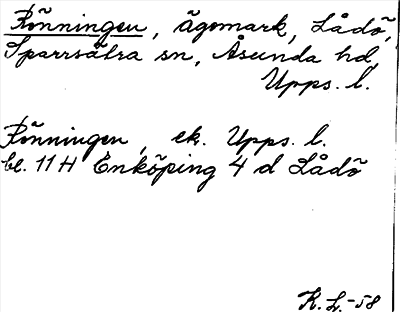 Rönningen, ägomark, Lådö,
Sparrsätra sn, Åsunda hd,
Upps. l.
Rönningen, ek. Upps. l.
bl. 11 H Enköping 4 d Lådö
K. L. -58